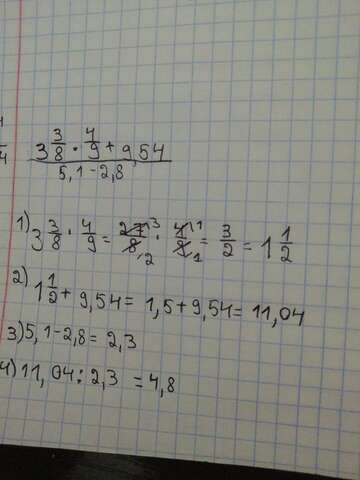 3 3/8 · 4/9 + 9,54
5,1 - 2,8
1) 3 3/8 · 4/9 = 27 3/8 2 · 4 1/9 1 = 3/2 = 1 1/2
2) 1 1/2 + 9,54 = 1,5 + 9,54 = 11,04
3) 5,1 - 2,8 = 2,3
4) 11,04 : 2,3 = 4,8